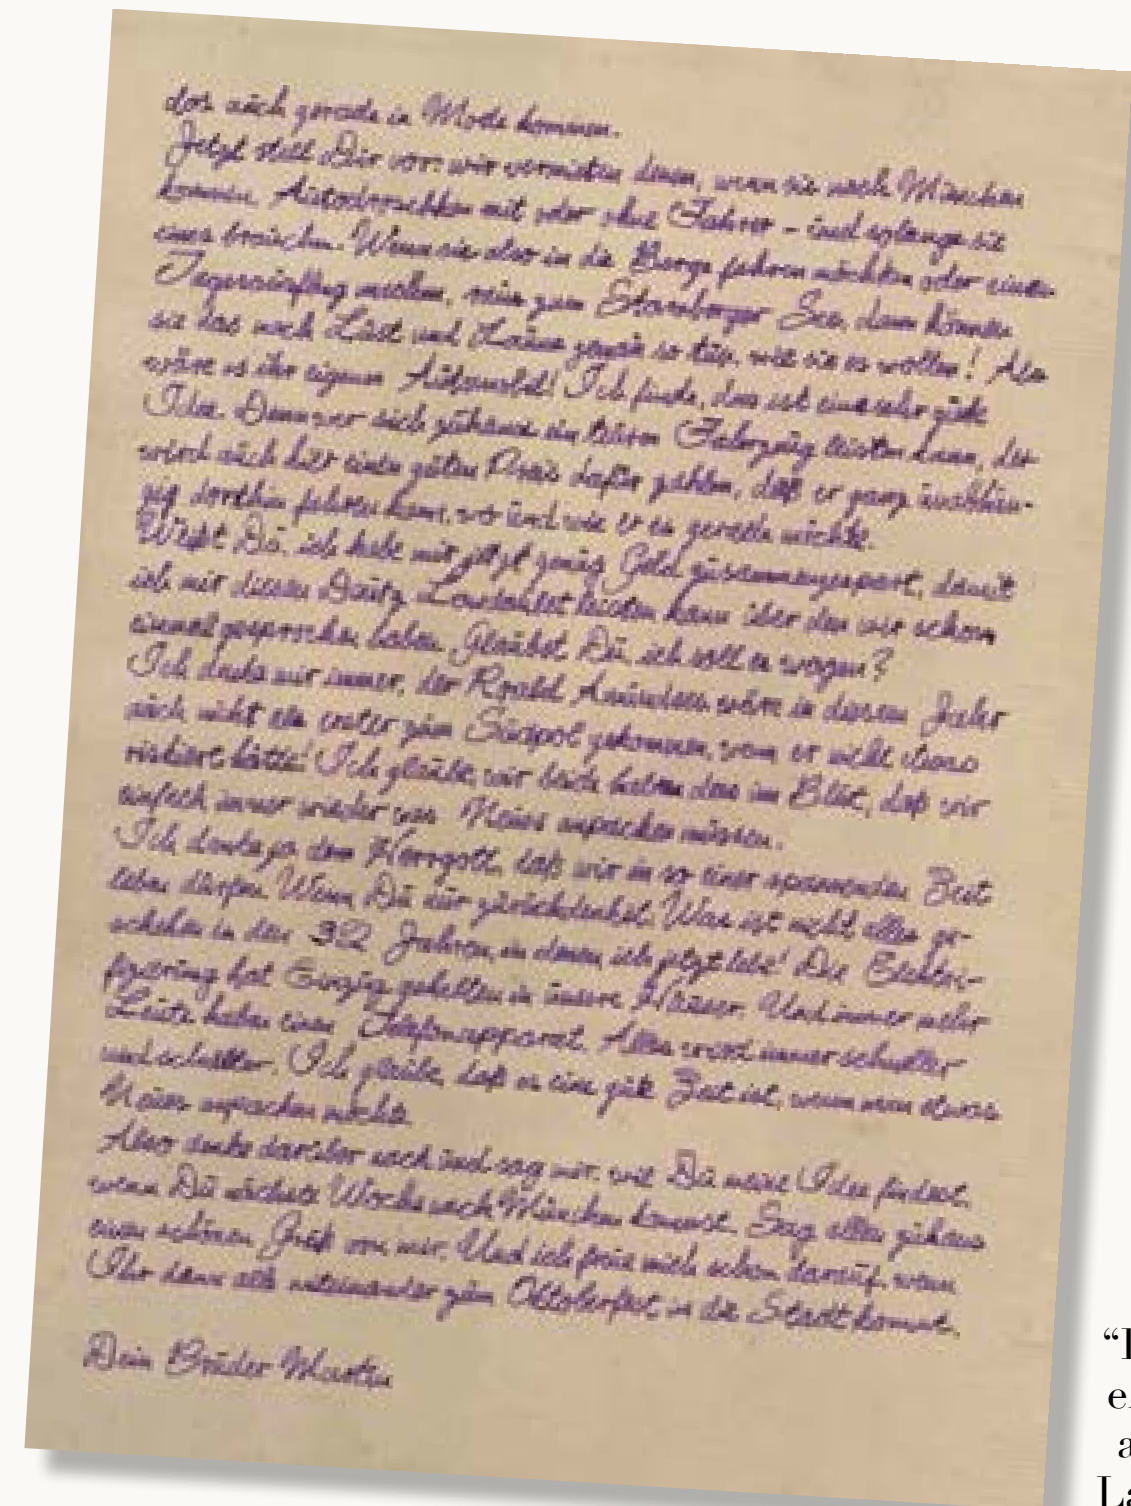 das auch gerade in Mode kommen.
Jetzt stell Dir vor: wir vermieten denen, wenn sie nach München
kommen, Autodroschken mit oder ohne Fahrer – und solange sie
eines brauchen. Wenn sie also in die Berge fahren möchten oder einen
Tagesausflug machen, raus zum Starnberger See, dann können
sie das nach Lust und Laune genau so tun, wie sie es wollen! Als
wäre es ihr eigenes Automobil! Ich finde, das ist eine sehr gute
Idee. Denn wer sich zuhause ein Fahrzeug leisten kann, der
wird auch hier einen guten Preis dafür zahlen, daß er ganz unabhän-
gig dorthin fahren kann, wo und wie er es gerade möchte.
Weißt Du, ich habe mir jetzt genug Geld zusammengespart, damit
ich mir diesen Deutz Landaulet leisten kann über den wir schon
einmal gesprochen haben. Glaubst Du, ich soll es wagen?
Ich denke mir immer, der Roald Amundsen wäre in diesem Jahr
auch nicht als erster zum Südpol gekommen, wenn er nicht etwas
riskiert hätte! Ich glaube, wir beide haben das im Blut, daß wir
einfach immer wieder was Neues anpacken müssen.
Ich danke ja dem Herrgott, daß wir in so einer spannenden Zeit
leben dürfen. Wenn Du nur zurückdenkst. Was ist nicht alles ge-
schehen in den 32 Jahren, in denen ich jetzt lebe! Die Elektri-
fizierung hat Einzug gehalten in unsere Häuser. Und immer mehr
Leute haben einen Telefonapparat. Alles wird immer schneller
und schneller. Ich glaube, daß es eine gute Zeit ist, wenn man etwas
Neues anpacken möchte.
Also denke darüber nach und sag mir, wie Du meine Idee findest,
wenn Du nächste Woche nach München kommst. Sag allen zuhause
einen schönen Gruß von mir. Und ich freue mich schon darauf, wenn
Ihr dann alle miteinander zum Oktoberfest in die Stadt kommt.
Dein Bruder Martin